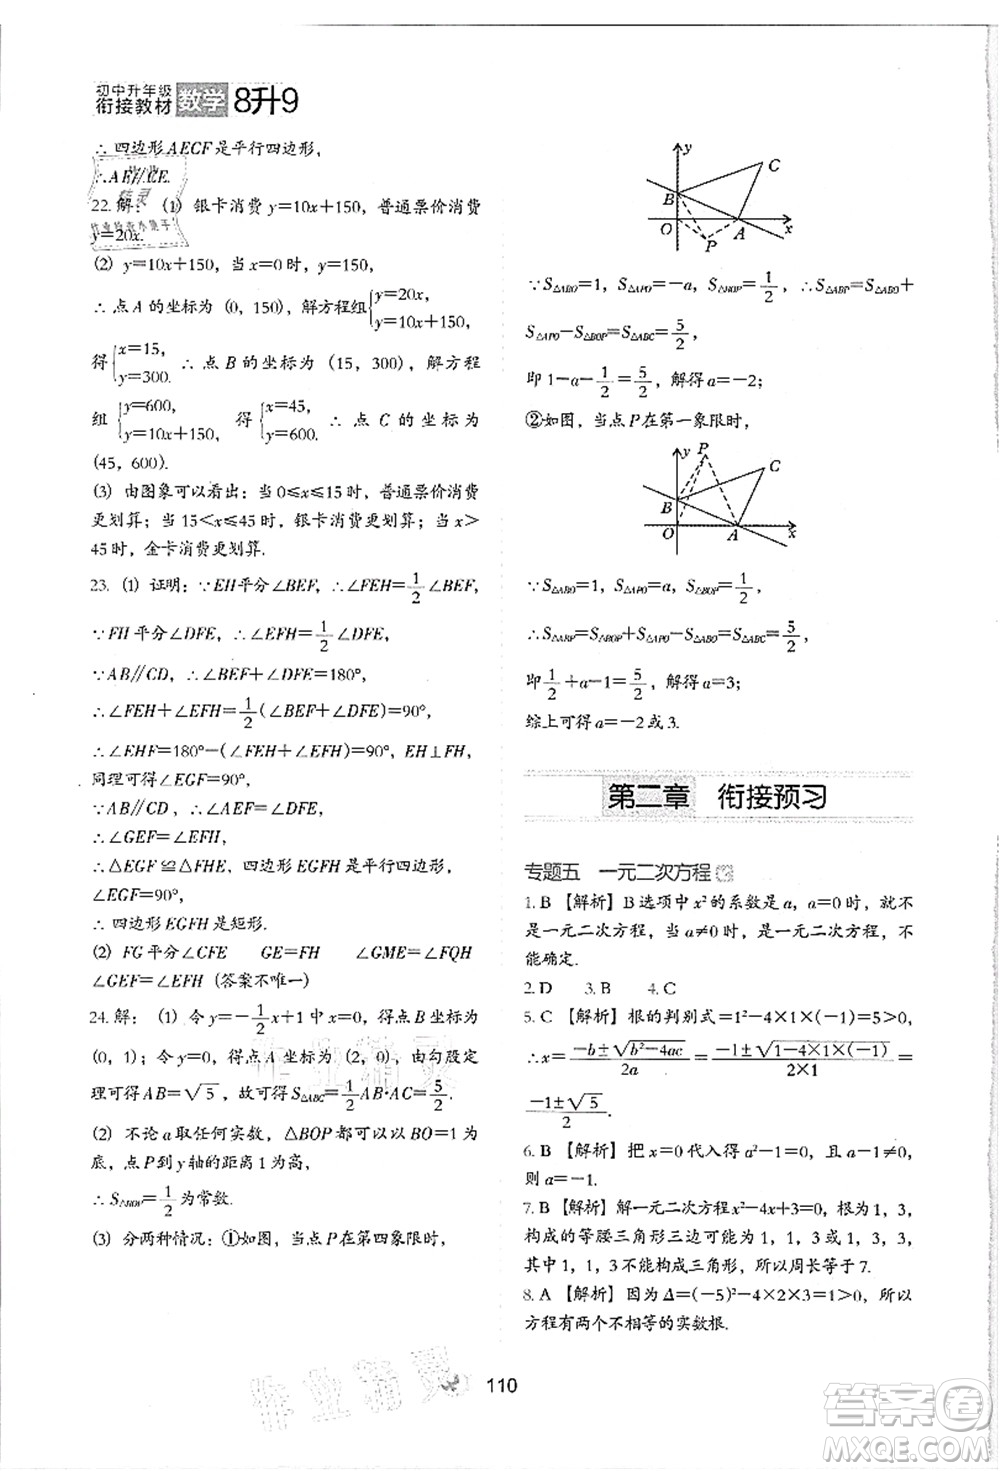 初中升年级
衔接教材 数学 8升9
∴四边形AECF是平行四边形，
∴AE∥CE.
22. 解：（1）银卡消费 y＝10x＋150，普通票价消费
y＝20x.
（2）y＝10x＋150，当 x＝0 时，y＝150，
∴点A的坐标为（0，150），解方程组{y＝20x, y＝10x＋150,
得{x＝15, y＝300. ∴点 B 的坐标为（15，300），解方程
组{y＝600, y＝10x＋150, 得{x＝45, y＝600. ∴点 C 的坐标为
(45，600).
（3）由图象可以看出：当 0≤x≤15时，普通票价消费
更划算；当 15＜x≤45 时，银卡消费更划算；当 x＞
45 时，金卡消费更划算.
23. （1）证明：∵EH平分∠BEF，∴∠FEH＝1/2∠BEF，
∵FH平分∠DFE，∴∠EFH＝1/2∠DFE，
∵AB∥CD，∴∠BEF＋∠DFE＝180°，
∴∠FEH＋∠EFH＝1/2(∠BEF＋∠DFE)＝90°，
∴∠EHF＝180°－(∠FEH＋∠EFH)＝90°，EH⊥FH，
同理可得∠EGF＝90°，
∵AB∥CD，∴∠AEF＝∠DFE，
∴∠GEF＝∠EFH，
∴△EGF≌△FHE，四边形EGFH是平行四边形，
∠EGF＝90°，
∴四边形EGFH是矩形.
（2）FG平分∠CFE GE＝FH ∠GME＝∠FQH
∠GEF＝∠EFH（答案不唯一）
24. 解：（1）令 y＝－1/2x＋1 中 x＝0，得点B坐标为
（0，1），令y＝0，得点A坐标为（2，0），由勾股定
理可得AB＝√5，故可得S△ABC＝1/2AB·AC＝5/2.
（2）不论a取任何实数，△BOP都可以以BO＝1为
底，点P到y轴的距离1为高，
∴S△BOP＝1/2为常数.
（3）分两种情况：①如图，当点P在第四象限时，
y
C
B
O
P
A
x
∵S△ABO＝1，S△APO＝－a，S△BOP＝1/2，∴S△ABP＝S△ABO＋
S△APO－S△BOP＝S△ABC＝5/2，
即 1－a－1/2＝5/2，解得 a＝－2；
②如图，当点P在第一象限时，
y
P
C
B
O
A
x
∵S△ABO＝1，S△APO＝a，S△BOP＝1/2，
∴S△ABP＝S△BOP＋S△APO－S△ABO＝S△ABC＝5/2，
即1/2＋a－1＝5/2，解得a＝3；
综上可得 a＝－2 或 3.
第二章 衔接预习
专题五 一元二次方程
1. B 【解析】B选项中 x²的系数是 a，a＝0时，就不
是一元二次方程，当 a≠0 时，是一元二次方程，不
能确定.
2. D 3. B 4. C
5. C 【解析】根的判别式＝1²－4×1×(－1)＝5＞0，
∴x＝(－b±√(b²－4ac))/2a＝(－1±√(1－4×1×(－1)))/(2×1)＝
(－1±√5)/2.
6. B 【解析】把 x＝0 代入得 a²－1＝0，且 a－1≠0，
则a＝－1.
7. B 【解析】解一元二次方程x²－4x＋3＝0，根为1，3，
构成的等腰三角形三边可能为 1，1，3 或 1，3，3，其
中 1，1，3 不能构成三角形，所以周长等于 7.
8. A 【解析】因为 Δ＝(－5)²－4×2×3＝1＞0，所以
方程有两个不相等的实数根.
110
作业精灵
答案圈
MXQE.COM